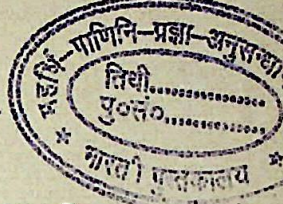 महर्षि-पाणिनि-प्रज्ञा-अनुसन्धा
तिथी..................
पु०सं०..................
* भारती पुस्तकालय *